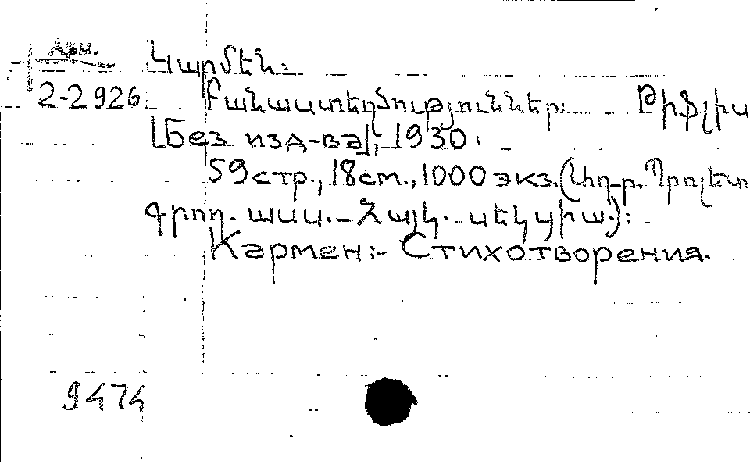 Арм. Կարմեն:
2-2926 Բանաստեղծություններ: Թիֆլիս
[Без изд-ва], 1930.
59стр., 18см., 1000 экз. Պրոլետ
գրող. ասս. - Հայկ. սեկցիա.):
Кармен:- Стихотворения.
9474